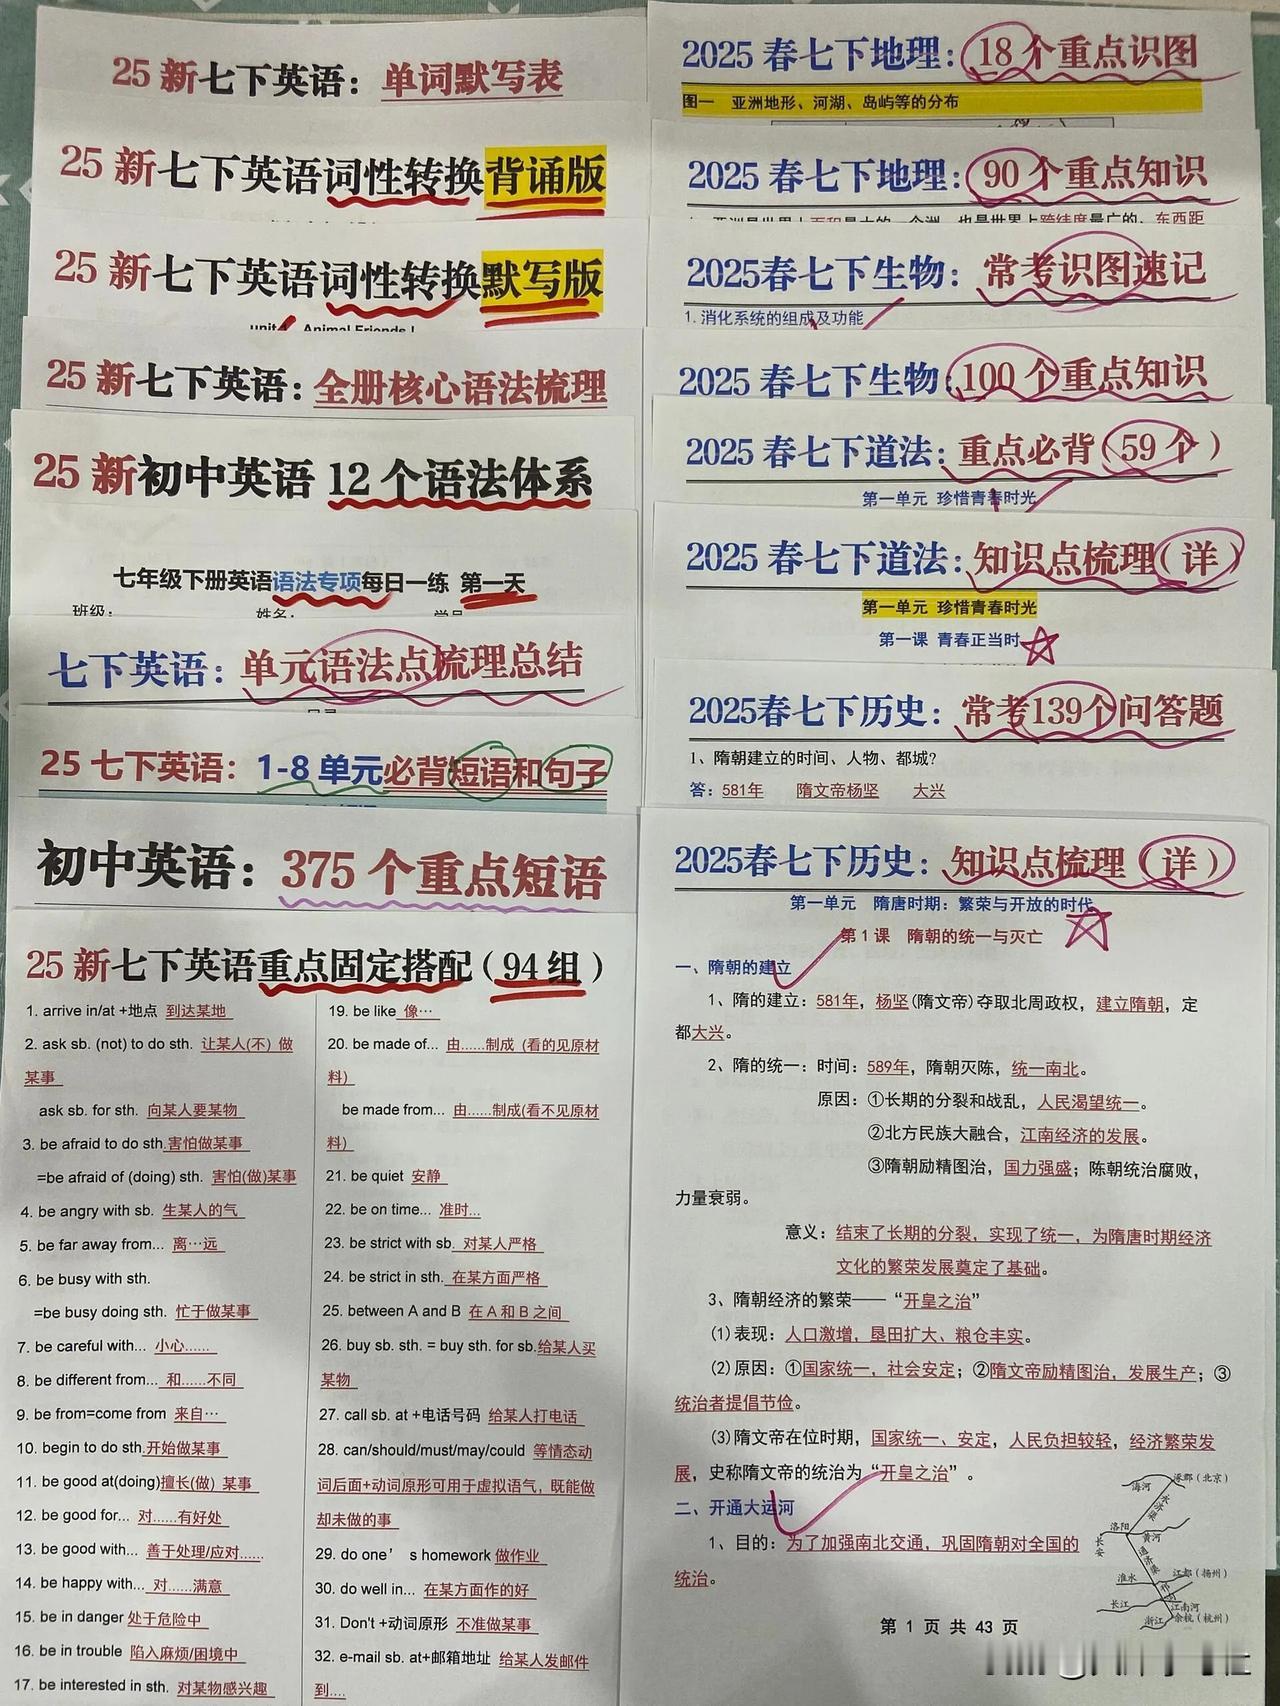 25 新七下英语：单词默写表
25 新七下英语词性转换背诵版
25 新七下英语词性转换默写版
unit 1 Animal Friends !
25 新七下英语：全册核心语法梳理
25 新初中英语 12 个语法体系
七年级下册英语语法专项每日一练 第一天
班级： 姓名： 学号
七下英语：单元语法点梳理总结
25 七下英语：1-8 单元必背短语和句子
初中英语：375 个重点短语
25 新七下英语重点固定搭配（94 组）
1. arrive in/at +地点 到达某地
2. ask sb. (not) to do sth. 让某人(不) 做
某事
ask sb. for sth. 向某人要某物
3. be afraid to do sth.害怕做某事
=be afraid of (doing) sth. 害怕(做)某事
4. be angry with sb. 生某人的气
5. be far away from... 离…远
6. be busy with sth.
=be busy doing sth. 忙于做某事
7. be careful with... 小心……
8. be different from... 和……不同
9. be from=come from 来自…
10. begin to do sth.开始做某事
11. be good at(doing)擅长(做) 某事
12. be good for... 对……有好处
13. be good with... 善于处理/应对……
14. be happy with... 对……满意
15. be in danger 处于危险中
16. be in trouble 陷入麻烦/困境中
17. be interested in sth. 对某物感兴趣
19. be like 像…
20. be made of... 由……制成 (看的见原材
料)
be made from... 由……制成(看不见原材
料)
21. be quiet 安静
22. be on time... 准时...
23. be strict with sb. 对某人严格
24. be strict in sth. 在某方面严格
25. between A and B 在 A 和 B 之间
26. buy sb. sth. = buy sth. for sb.给某人买
某物
27. call sb. at +电话号码 给某人打电话
28. can/should/must/may/could 等情态动
词后面+动词原形可用于虚拟语气，既能做
却未做的事
29. do one’ s homework 做作业
30. do well in... 在某方面作的好
31. Don't +动词原形 不准做某事
32. e-mail sb. at+邮箱地址 给某人发邮件
到....
2025 春七下地理：18个重点识图
图一 亚洲地形、河湖、岛屿等的分布
2025 春七下地理：90 个重点知识
亚洲是世界上面积最大的一个洲，也是世界上跨纬度最广的、东西距
2025春七下生物：常考识图速记
1.消化系统的组成及功能
2025 春七下生物：100 个重点知识
2025 春七下道法：重点必背（59 个）
第一单元 珍惜青春时光
2025 春七下道法：知识点梳理（详）
第一单元 珍惜青春时光
第一课 青春正当时
2025春七下历史：常考139个问答题
1、隋朝建立的时间、人物、都城?
答：581年 隋文帝杨坚 大兴
2025春七下历史：知识点梳理（详）
第一单元 隋唐时期：繁荣与开放的时代
第1课 隋朝的统一与灭亡
一、隋朝的建立
1、隋的建立：581年，杨坚(隋文帝)夺取北周政权，建立隋朝，定
都大兴。
2、隋的统一：时间：589年，隋朝灭陈，统一南北。
原因：①长期的分裂和战乱，人民渴望统一。
②北方民族大融合，江南经济的发展。
③隋朝励精图治，国力强盛；陈朝统治腐败，
力量衰弱。
意义：结束了长期的分裂，实现了统一，为隋唐时期经济
文化的繁荣发展奠定了基础。
3、隋朝经济的繁荣——“开皇之治”
(1)表现：人口激增，垦田扩大、粮仓丰实。
(2)原因：①国家统一，社会安定；②隋文帝励精图治，发展生产；③
统治者提倡节俭。
(3)隋文帝在位时期，国家统一、安定，人民负担较轻，经济繁荣发
展，史称隋文帝的统治为“开皇之治”。
二、开通大运河
1、目的：为了加强南北交通，巩固隋朝对全国的
统治。
涿郡（北京）
海河
永济渠
洛阳
黄河
长安
通济渠
淮水
江都（扬州）
长江
江南河
余杭（杭州）
浙江
第 1 页 共 43 页